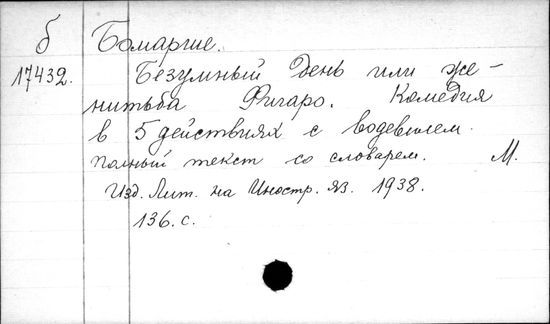 б Бомарше.
17432. Безумный день или же-
нитьба Фигаро. Комедия
в 5 действиях с водевилем.
Полный текст со словарем. М.
Изд. Лит. на Иностр. яз. 1938.
136. с.